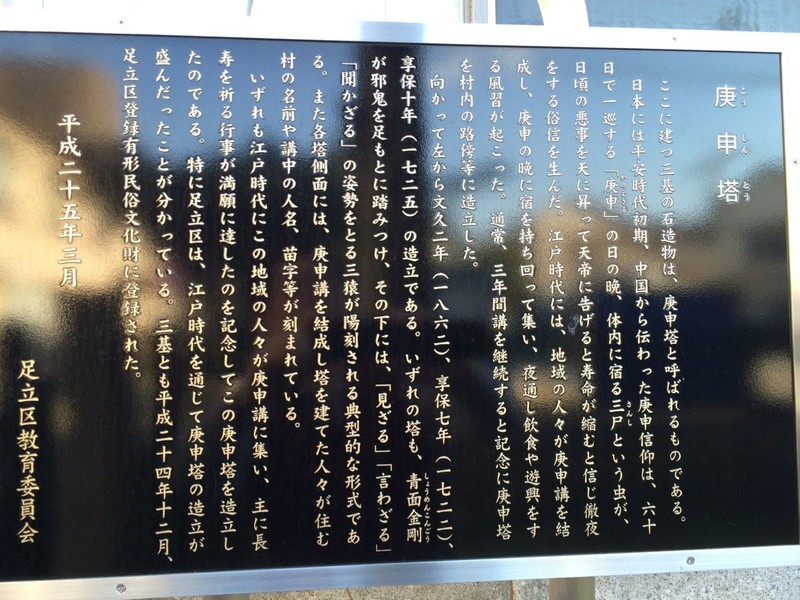 庚申塔
こうしんとう
ここに建つ三基の石造物は、庚申塔と呼ばれるものである。
日本には平安時代初期、中国から伝わった庚申信仰は、六十
日で一巡する「庚申」の日の晩、体内に宿る三尸という虫が、
さんし
日頃の悪事を天に昇って天帝に告げると寿命が縮むと信じ徹夜
をする俗信を生んだ。江戸時代には、地域の人々が庚申講を結
成し、庚申の晩に宿を持ち回って集い、夜通し飲食や遊興をす
る風習が起こった。通常、三年間講を継続すると記念に庚申塔
を村内の路傍等に造立した。
向かって左から文久二年（一八六二）、享保七年（一七二二）、
享保十年（一七二五）の造立である。いずれの塔も、青面金剛
しょうめんこんごう
が邪鬼を足もとに踏みつけ、その下には、「見ざる」「言わざる」
「聞かざる」の姿勢をとる三猿が陽刻される典型的な形式であ
る。また各塔側面には、庚申講を結成し塔を建てた人々が住む
村の名前や講中の人名、苗字等が刻まれている。
いずれも江戸時代にこの地域の人々が庚申講に集い、主に長
寿を祈る行事が満願に達したのを記念してこの庚申塔を造立し
たのである。特に足立区は、江戸時代を通じて庚申塔の造立が
盛んだったことが分かっている。三基とも平成二十四年十二月、
足立区登録有形民俗文化財に登録された。
平成二十五年三月
足立区教育委員会